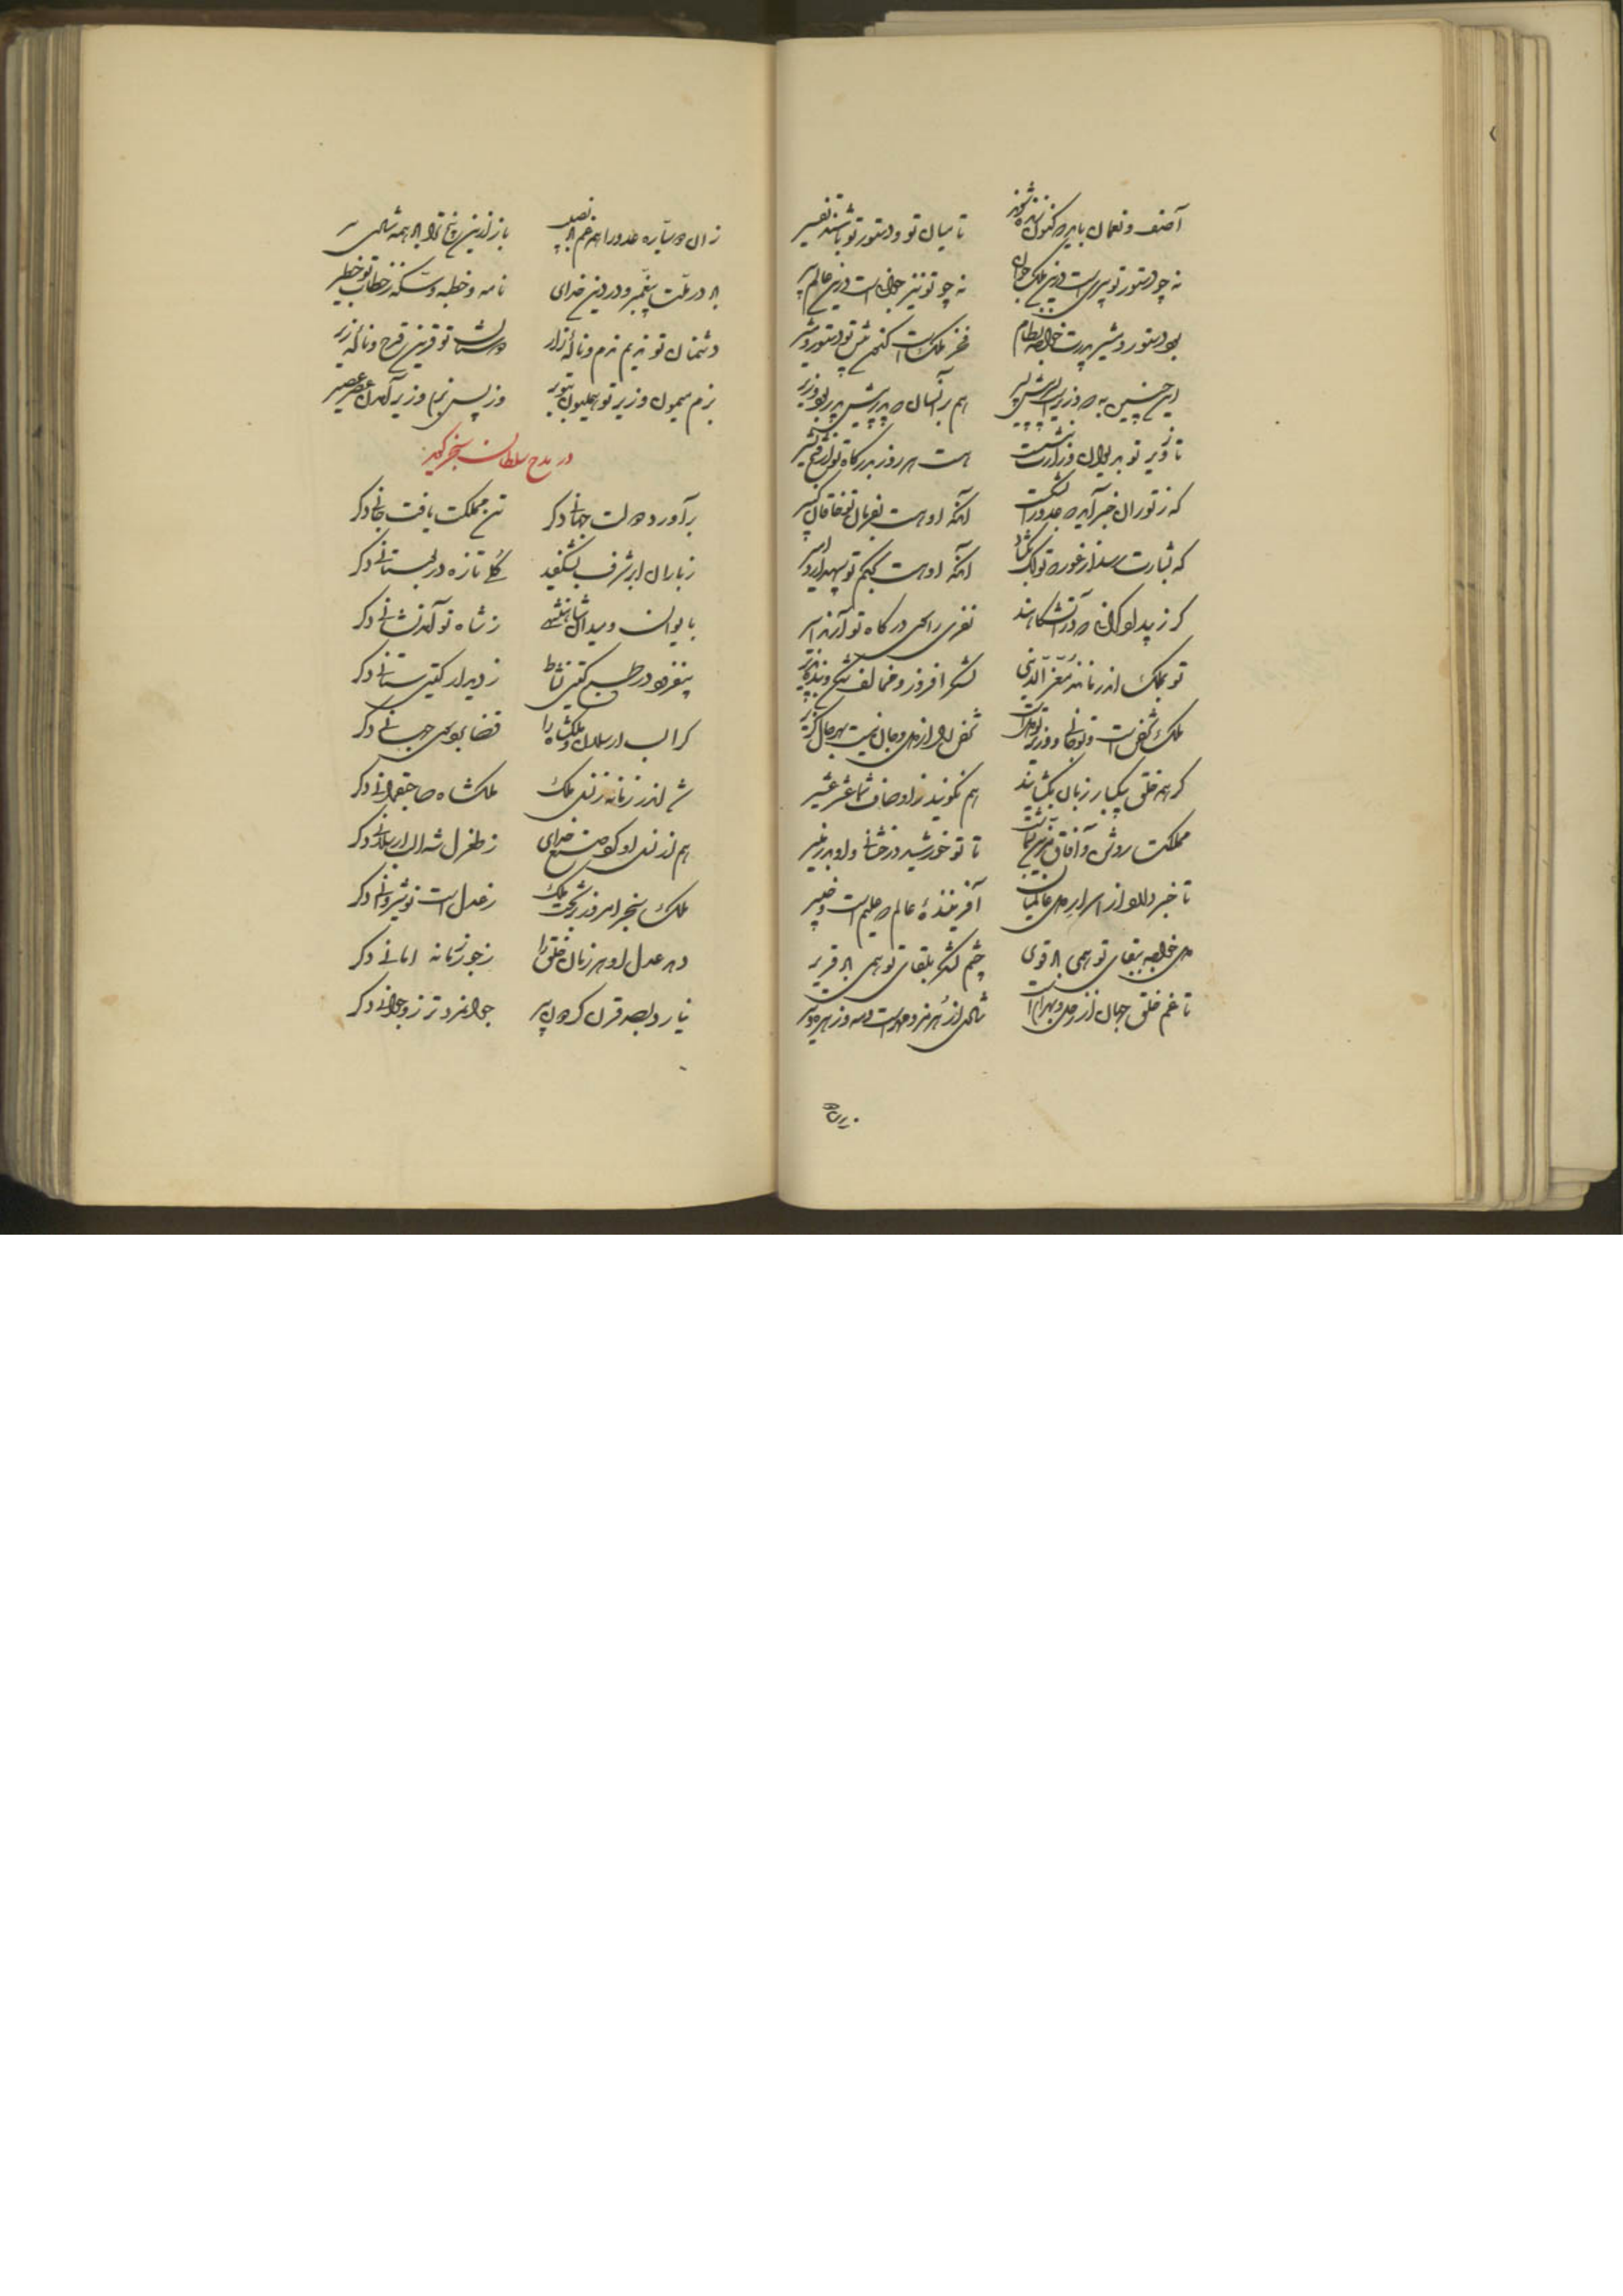 آصف و نعمان باید که کنون زنده شوند تا میان تو و دستور تو باشند سفیر
نه چو دستور تو پیر است درین ملک جوان نه چو تو نیز جوان است درین عالم پیر
بود دستور و مشیر پدرت خواجه نظام فخر ملک است کنون پیش تو دستور و مشیر
این چنین به که وزیر است پسر پیش پسر هم بر آنسان که پدر پیش پدر بود وزیر
تا وزیر تو بدیوان وزارت بنشست هست هر روز بدرگاه تو از فتح بشیر
که ز توران خبر آید که عدو را بشکست آنکه او هست بفرمان تو خاقان کبیر
که بشارت رسد از غور که تولک بگشاد آنکه او هست بحکم تو سپهدار و امیر
تو بملک اندر مانند معز الدینی لشکر افروز و مخالف شکن و بنده پذیر
ملک شخص است و تو جانی و وزیر تو دل است شخص را از دل و جان نیست بهر حال گزیر
گر همه خلق بیکبار زبان بگشایند هم نگویند ز اوصاف شما عشر عشیر
مملکت روشن و آفاق مزین بشماست تا تو خورشید درخشانی و او بدر منیر
تا خبر دارد از اسرار دل عالمیان آفریننده عالم که علیم است و خبیر
دل خواجه ببقای تو همی باد قوی چشم لشکر بلقای تو همی باد قریر
تا غم خلق جهان از زحل و بهرام است شادی از هرمز و مهر است و مه و زهره و تیر
زان دو سیاره عدو را همه غم باد نصیب باز ازین پنج ترا باد همه شادی
باد در ملت پیغمبر و در دین خدای نامه و خطبه و سکه ز خطاب تو خطیر
دشمنان تو ندیم ندم و ناله زار دوستان تو قرین قرح و ناله زیر
بزم میمون وزیر تو همایون بتو بر وز پس بزم وزیر آمدن عصر عصیر
در مدح سلطان سنجر گوید
برآورد دولت جهانی دگر تن مملکت یافت جانی دگر
ز باران ابر شرف بشگفید گلی تازه در بوستانی دگر
بایوان و میدان شاهنشهی ز شاه نو آمد نشانی دگر
بیفزود در طبع گیتی نشاط ز دیدار گیتی ستانی دگر
کرا الب ارسلان و ملکشاه را قضا بود هر یک جهانی دگر
شد اندر زمانه ز نسل ملک ملکشاه صاحبقرانی دگر
هم از نسل او کرد صنع خدای ز طغرل شه الب ارسلانی دگر
ملک سنجر امروز بر تخت ملک ز عدل است نوشیروانی دگر
دهد عدل او هر زمان خلق را ز جور زمانه امانی دگر
نیارد بصد قرن گردون پیر جوانمردتر زو جوانی دگر